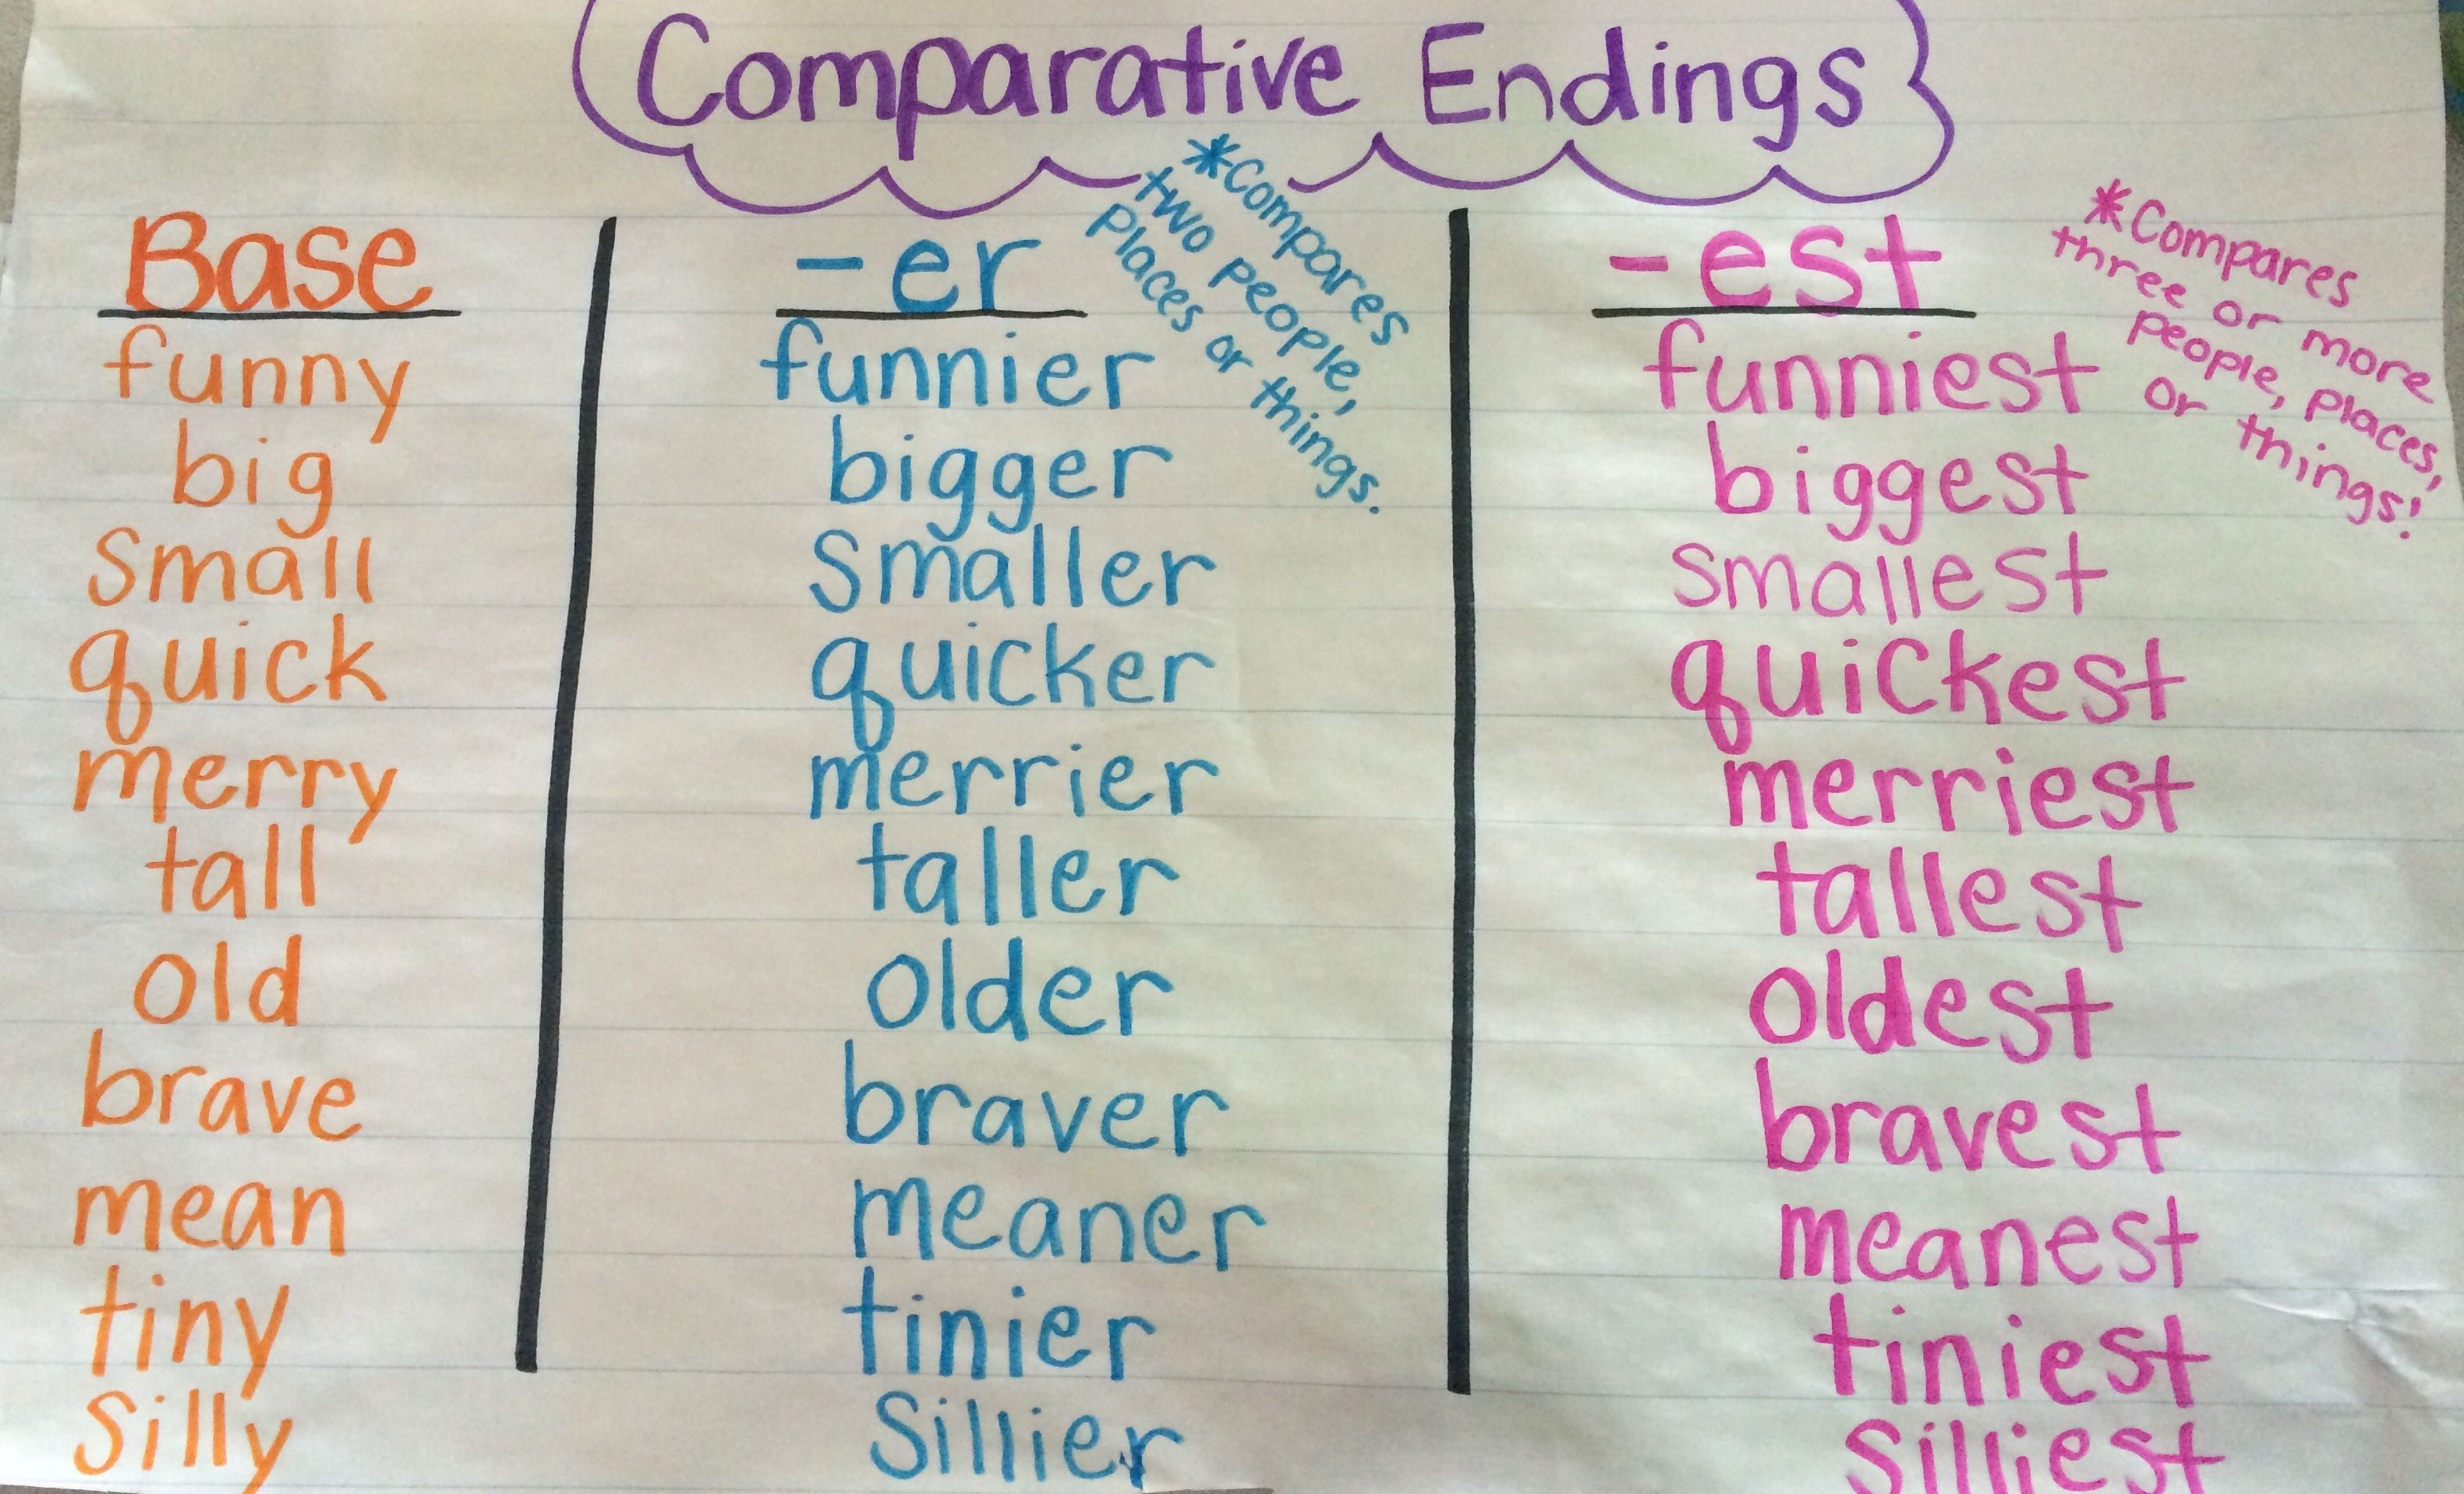 Comparative Endings
Base
-er
*Compares
two people,
places or things.
-est
*Compares
three or more
people, places,
or things!
funny funnier funniest
big bigger biggest
small smaller smallest
quick quicker quickest
merry merrier merriest
tall taller tallest
old older oldest
brave braver bravest
mean meaner meanest
tiny tinier tiniest
Silly Sillier Silliest